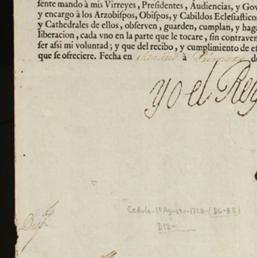 ſente mando à mis Virreyes, Preſidentes, Audiencias, y Gov
y encargo à los Arzobiſpos, Obiſpos, y Cabildos Ecleſiaſtico
y Cathedrales de ellos, obſerven, guarden, cumplan, y haga
liberacion, cada vno en la parte que le tocare, ſin contraven
ſer aſsi mi voluntad; y que del recibo, y cumplimiento de eſ
que ſe ofreciere. Fecha en à de
yo el Rey
Cedula